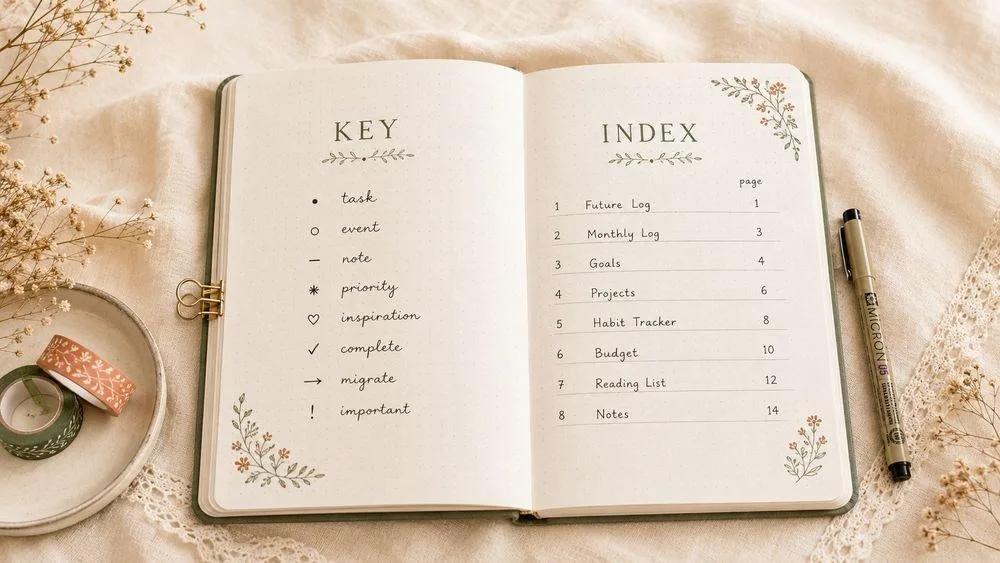 KEY
• task
○ event
— note
✱ priority
♡ inspiration
✓ complete
→ migrate
! important
INDEX
page
1 Future Log 1
2 Monthly Log 3
3 Goals 4
4 Projects 6
5 Habit Tracker 8
6 Budget 10
7 Reading List 12
8 Notes 14
MICRON 05